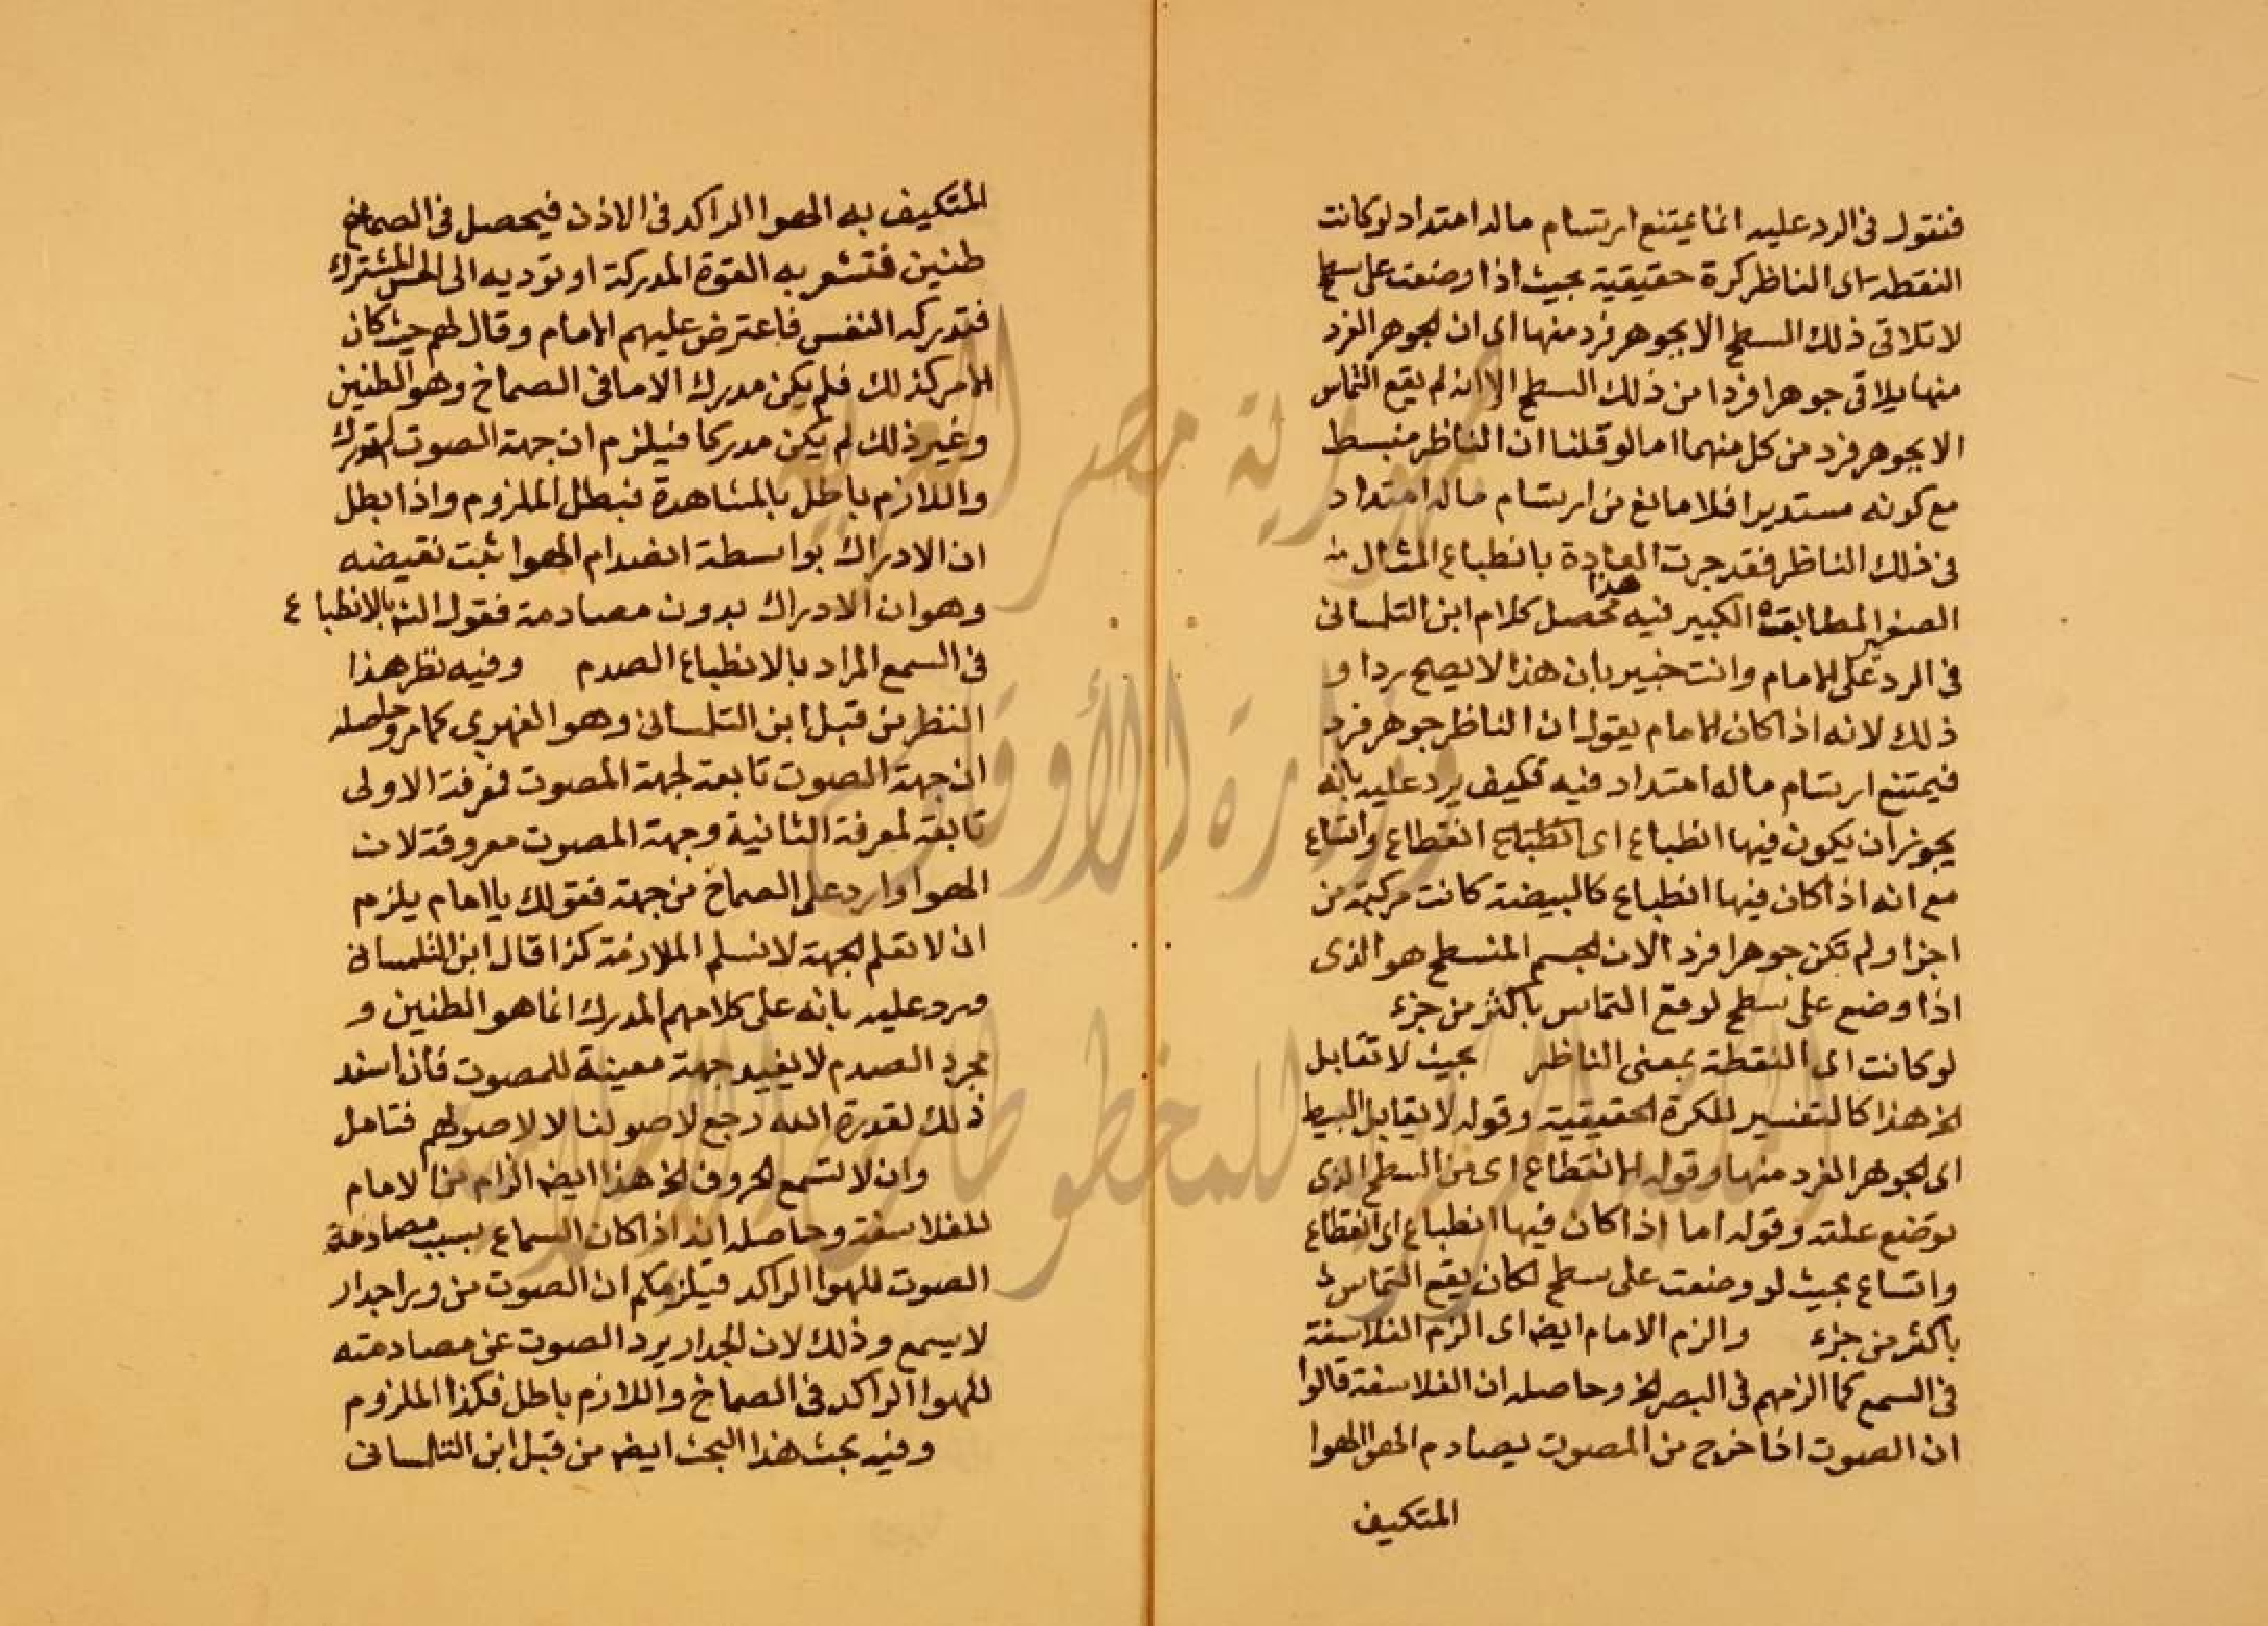 فنقول فى الرد عليه انما يمتنع ارتسام ماله امتداد لو كانت
النقطه اى الناظر كرة حقيقية بحيث اذا وضعت على سطح
لا تلاقى ذلك السطح الا بجوهر فرد منها اى ان الجوهر الفرد
منها يلاقى جوهرا فردا من ذلك السطح الا انه لم يقع التماس
الا بجوهر فرد من كل منهما اما لو قلنا ان الناظر منبسط
مع كونه مستديرا فلا مانع من ارتسام ماله امتداد
فى ذلك الناظر فقد جرت العادة بانطباع المثال منه
الصغير المطابقة الكبير فيه هذا محصل كلام ابن التلمسانى
فى الرد على الامام وانت خبير بان هذا لا يصح ردا و
ذلك لانه اذا كان الامام يقول ان الناظر جوهر فرد
فيمتنع ارتسام ماله امتداد فيه فكيف يرد عليه بانه
يجوز ان يكون فيها انطباع اى انقطاع واتساع
مع انه اذا كان فيها انطباع كالبيضة كانت مركبة من
اجزا ولم تكن جوهرا فردا لان الجسم المنسطح هو الذى
اذا وضع على سطح لوقع التماس باكثر من جزء
لو كانت اى النقطة بمعنى الناظر بحيث لا تقابل
الخ هذا كالتفسير للكرة الحقيقية وقوله لا يقابل البسيط
اى الجوهر الفرد منها وقوله الانقطاع اى من السطح الذى
توضع عليه وقوله اما اذا كان فيها انطباع اى انقطاع
واتساع بحيث لو وضعت على سطح لكان يقع التماس
باكثر من جزء والزم الامام ايضا اى الزم الفلاسفة
فى السمع كما الزمهم فى البصر الخ وحاصله ان الفلاسفة قالوا
ان الصوت اذا خرج من المصوت يصادم الهوا الهوا
المتكيف
المتكيف به الهوا الراكد فى الاذن فيحصل فى الصماخ
طنين فتشعر به القوة المدركة او توديه الى الحس المشترك
فتدركه النفس فاعترض عليهم الامام وقال لهم حيث كان
الامر كذلك فلم يكن مدرك الا ما فى الصماخ وهو الطنين
وغير ذلك لم يكن مدركا فيلزم ان جهة الصوت لم تدرك
واللازم باطل بالمشاهدة فبطل الملزوم واذا بطل
ان الادراك بواسطة انصدام الهوا ثبت نقيضه
وهو ان الادراك بدون مصادمة فقول الش بالانطباع
فى السمع المراد بالانطباع الصدم وفيه نظر هذا
النظر من قبل ابن التلمسانى وهو الفهري كما مر وحاصله
ان جهة الصوت تابعة لجهة المصوت فمعرفة الاولى
تابعة لمعرفة الثانية وجهة المصوت معروفة لان
الهوا وارد على الصماخ من جهة فقولك يا امام يلزم
ان لا تعلم الجهة لا نسلم الملازمة كذا قال ابن التلمسانى
ورد عليه بانه على كلامهم المدرك انما هو الطنين و
مجرد الصدم لا يفيد جهة معينة للمصوت فان اسند
ذلك لقدرة الله رجع لاصولنا لا لاصولهم فتامل
وان لا تسمع الحروف الخ هذا ايضا الزام من الامام
للفلاسفة وحاصله انه اذا كان السماع بسبب مصادمة
الصوت للهوا الراكد فيلزمكم ان الصوت من ورا جدار
لا يسمع وذلك لان الجدار يرد الصوت عن مصادمته
للهوا الراكد فى الصماخ واللازم باطل فكذا الملزوم
وفيه بحث هذا البحث ايضا من قبل ابن التلمسانى